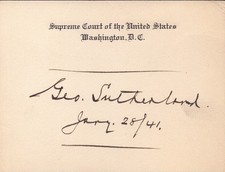 Supreme Court of the United States
Washington, D.C.
Geo. Sutherland.
Jany. 28/41.